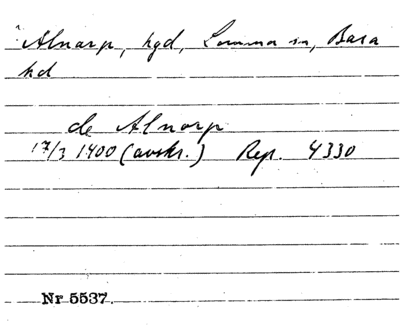 Alnarp, hgd, Lomma sn, Bara
hd
de Alnorp
17/3 1400 (avskr.) Rep. 4330
Nr 5537.